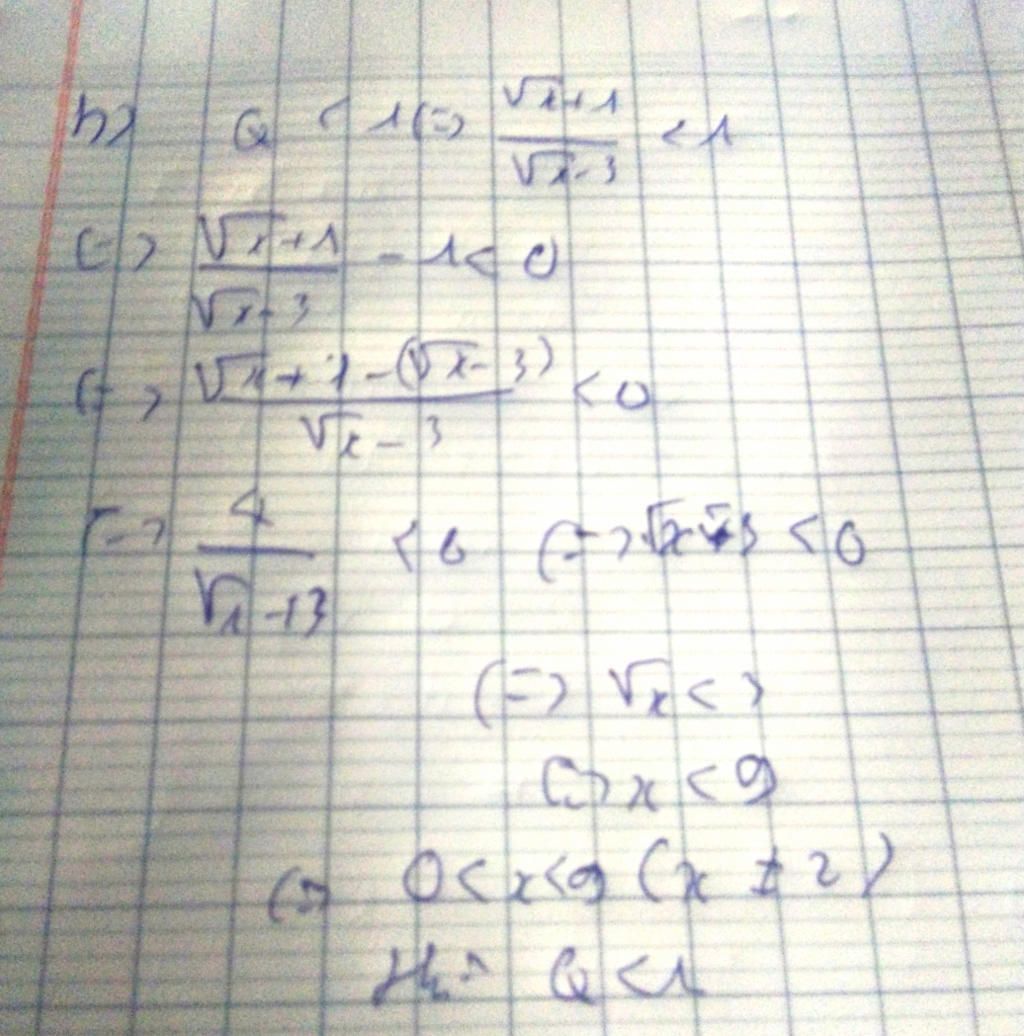 b) Q < 1 (=) \frac{\sqrt{x}+1}{\sqrt{x}-3} < 1
(=) \frac{\sqrt{x}+1}{\sqrt{x}-3} - 1 < 0
(=) \frac{\sqrt{x}+1-(\sqrt{x}-3)}{\sqrt{x}-3} < 0
(=) \frac{4}{\sqrt{x}-3} < 0 (=) \sqrt{x}-3 < 0
(=) \sqrt{x} < 3
(=) x < 9
(=) 0 < x < 9 (x ≠ 2)
Q < 1